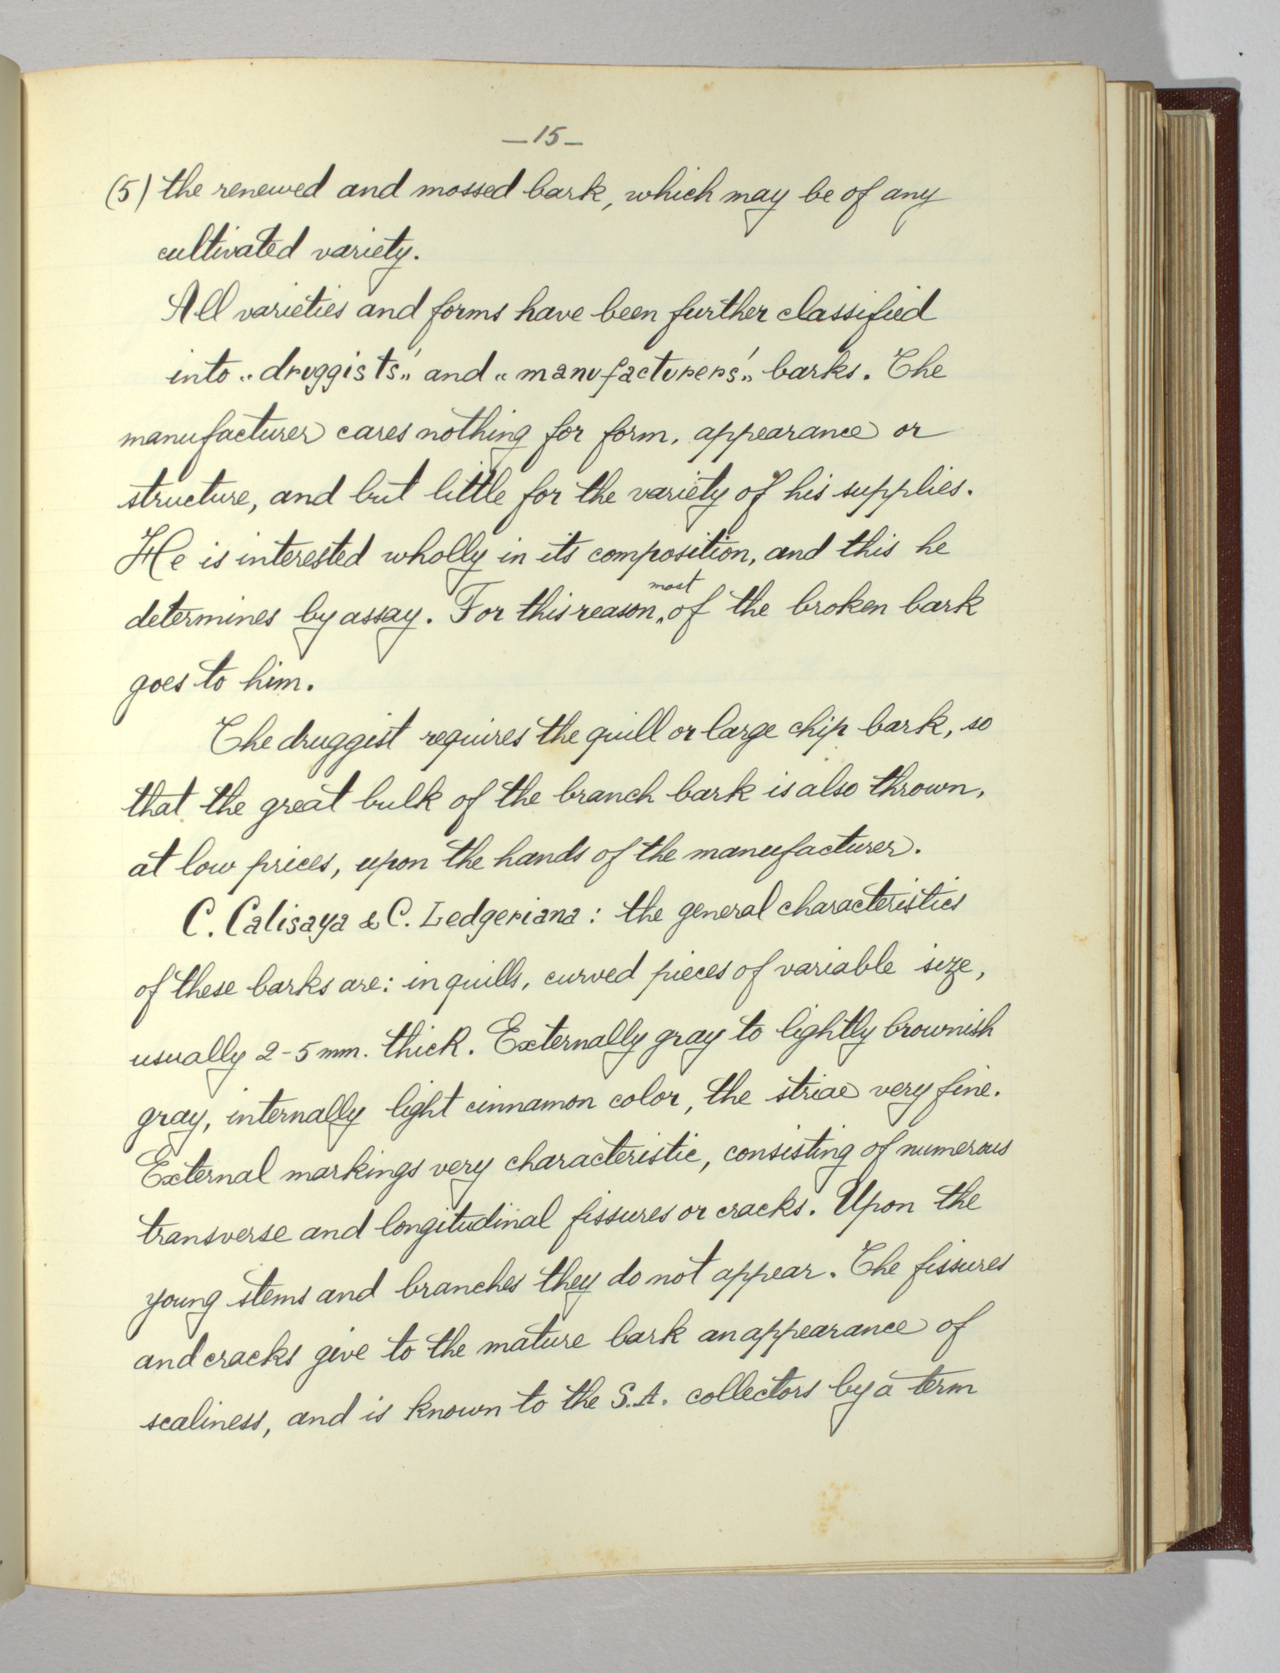 —15—
(5) the renewed and mossed bark, which may be of any
cultivated variety.
All varieties and forms have been further classified
into „druggists'„ and „manufacturers'„ barks. The
manufacturer cares nothing for form, appearance or
structure, and but little for the variety of his supplies.
He is interested wholly in its composition, and this he
determines by assay. For this reason, most of the broken bark
goes to him.
The druggist requires the quill or large chip bark, so
that the great bulk of the branch bark is also thrown,
at low prices, upon the hands of the manufacturer.
C. Calisaya & C. Ledgeriana: the general characteristics
of these barks are: in quills, curved pieces of variable size,
usually 2-5 mm. thick. Externally gray to lightly brownish
gray, internally light cinnamon color, the striae very fine.
External markings very characteristic, consisting of numerous
transverse and longitudinal fissures or cracks. Upon the
young stems and branches they do not appear. The fissures
and cracks give to the mature bark an appearance of
scaliness, and is known to the S.A. collectors by a term